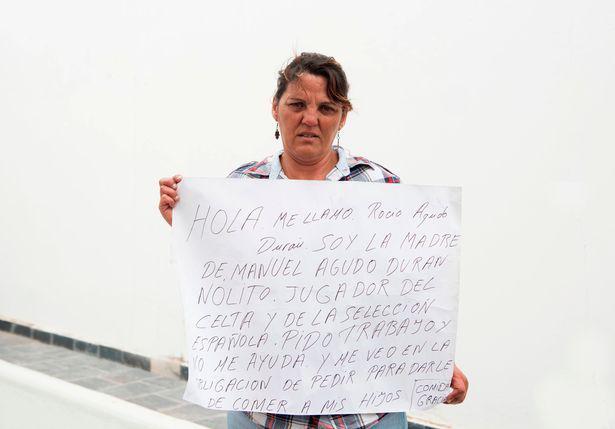 HOLA. ME LLAMO. Rocio Agudo
Durán. SOY LA MADRE
DE. MANUEL AGUDO DURAN
NOLITO. JUGADOR DEL
CELTA Y DE LA SELECCION
ESPAÑOLA. PIDO TRABAJO Y
NO ME AYUDA Y ME VEO EN LA
OBLIGACION DE PEDIR PARA DARLE
DE COMER A MIS HIJOS
COMIDA
GRACIAS